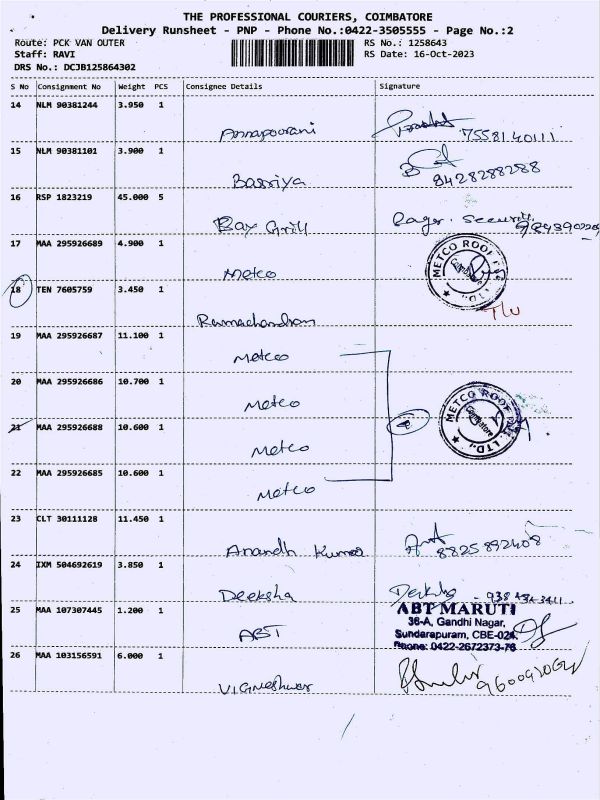 THE PROFESSIONAL COURIERS, COIMBATORE
Delivery Runsheet - PNP - Phone No.:0422-3505555 - Page No.:2
Route: PCK VAN OUTER RS No.: 1258643
Staff: RAVI RS Date: 16-Oct-2023
DRS No.: DCJB125864302
S No Consignment No Weight PCS Consignee Details Signature
14 NLM 90381244 3.950 1
Annapoorani 7558140111
15 NLM 90381101 3.900 1
Basriya 9428288288
16 RSP 1823219 45.000 5
Bay Grill
17 MAA 295926689 4.900 1
Metco METCO ROOF PVT. LTD. Coimbatore
18 TEN 7605759 3.450 1
Ramachandran
19 MAA 295926687 11.100 1
Metco
20 MAA 295926686 10.700 1
Metco METCO ROOF PVT. LTD. Coimbatore
21 MAA 295926688 10.600 1
Metco
22 MAA 295926685 10.600 1
Metco
23 CLT 30111128 11.450 1
Anandh Kumar 8825892408
24 IXM 504692619 3.850 1
Deeksha
25 MAA 107307445 1.200 1
ABT
ABT MARUTI
36-A, Gandhi Nagar,
Sundarapuram, CBE-024.
Phone: 0422-2672373-76
26 MAA 103156591 6.000 1
Vigneshwar